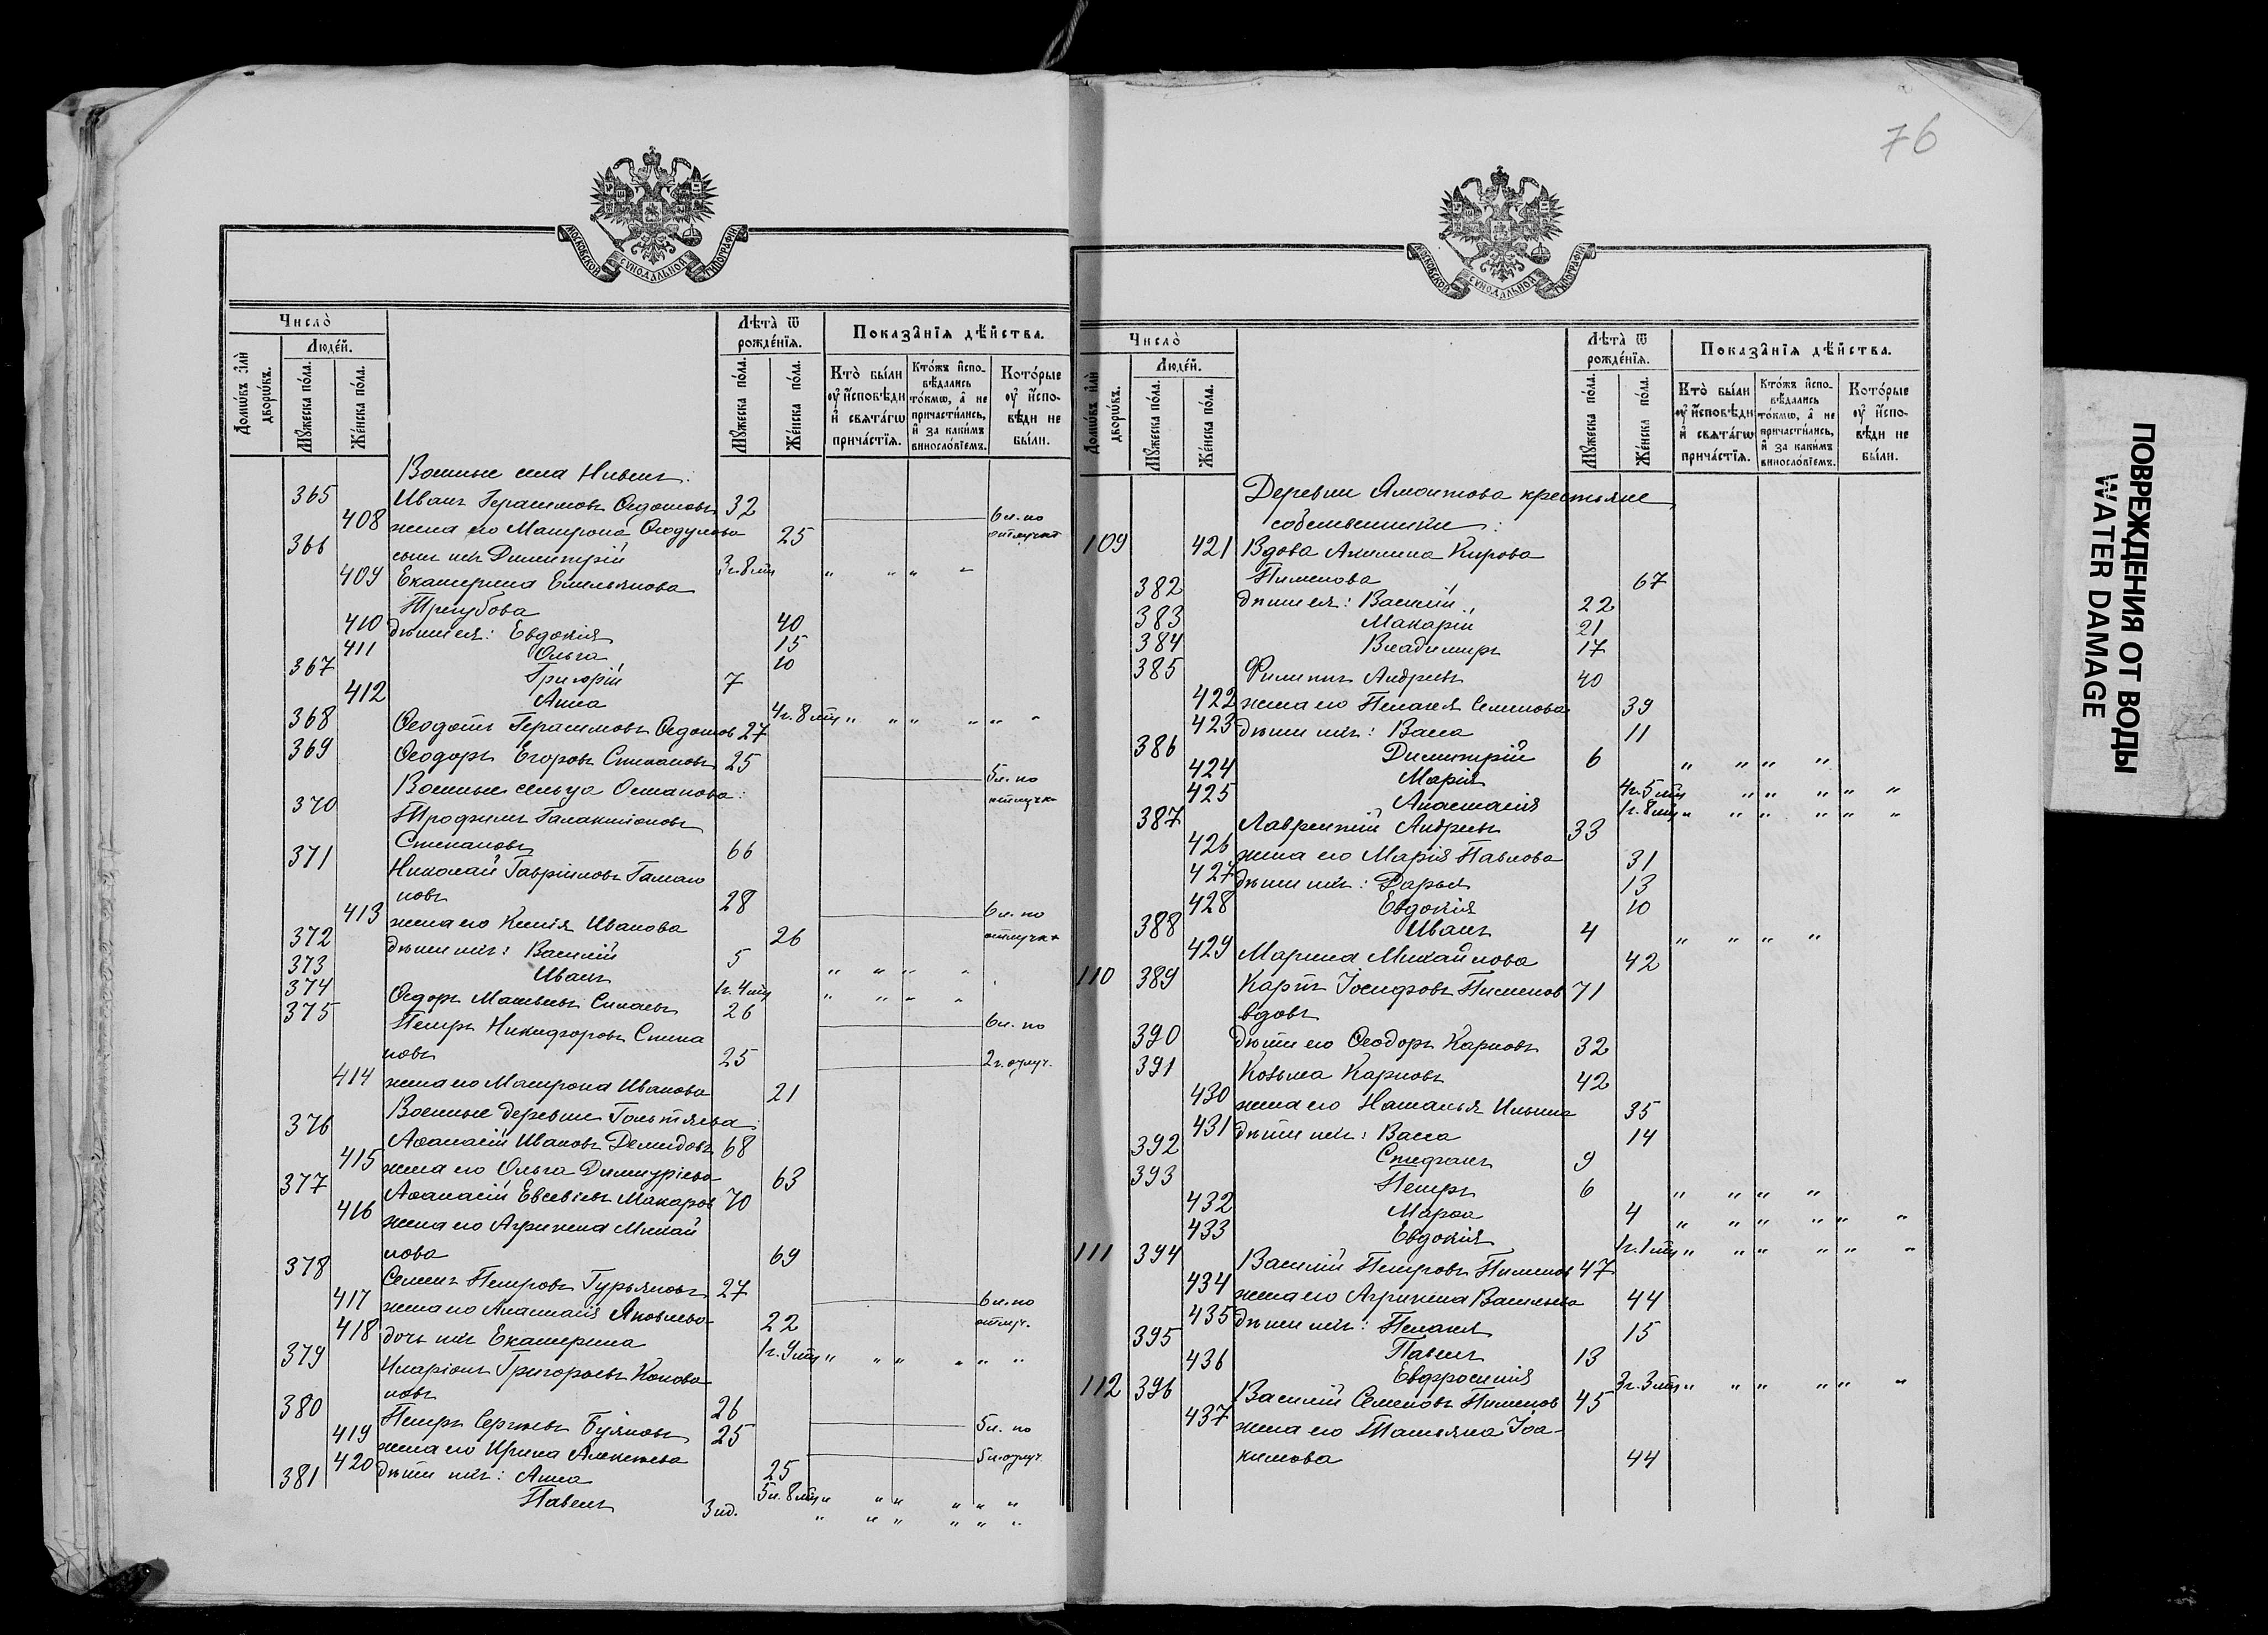 76
МОСКОВСКОЙ СѴНОДАЛЬНОЙ ТИПОГРАФІИ
Число̀
Людéй.
Домѡ́въ и҆лѝ дворѡ́въ.
Мꙋ́жеска по́ла.
Же́нска по́ла.
Лѣта̀ ѿ рожде́нїѧ.
Мꙋ́жеска по́ла.
Же́нска по́ла.
Показа̑нїѧ дѣ́йства.
Кто̀ бы́ли ᲂу҆ и҆сповѣ́ди и҆ свѧта́гѡ прича́стїѧ.
Кто́жъ и҆сповѣ́дались то́кмѡ, а҆ не причасти́лись, и҆ за каки́мъ винослⷪ́вїемъ.
Кото́рые ᲂу҆ и҆сповѣ́ди не бы́ли.
Военные села
365 Иванъ Герасимовъ Ѳедотовъ 32 6 л. по
408 жена его Матрона Ѳеодулова 25 отлучкѣ
366 сынъ ихъ Димитрій 3 г. 8 мц
409 Екатерина Емельянова
Трегубова 40
410 дѣти ея: Евдокія 15
411 Ольга 10
367 Григорій 7
412 Анна 4 г. 8 мц
368 Ѳеодотъ Герасимовъ Ѳедотов 27
369 Ѳеодоръ Егоровъ Степановъ 25 5 л. по
Военные сельца Останова: отлучкѣ
370 Трофимъ Галактіоновъ
Степановъ 66
371 Николай Гавріиловъ
новъ 28
413 жена его Ксенія Иванова 26 6 л. по отлучкѣ
372 дѣти ихъ: Василій 5
373 Иванъ 1 г. 4 мц
374 Ѳедоръ Матвѣевъ 26 6 л. по
375 Петръ Никифоровъ Степа
новъ 25 2 г. отлуч.
414 жена его Матрона Иванова 21
Военные деревни
376 Аѳанасій Ивановъ Демидовъ 68
415 жена его Ольга Димитріева 63
377 Аѳанасій Евсевіевъ Макаров 70
416 жена его Агрипена Михай
лова 69
378 Семенъ Петровъ Гурьяновъ 27 6 л. по
417 жена его Анастасія Яковлева 22 отлуч.
418 дочь ихъ Екатерина 1 г. 9 мц
379 Иларіонъ Григорьевъ Конова
ловъ 26
380 Петръ Сергѣевъ Буяновъ 25 5 л. по
419 жена его Ирина Алексѣева 25 5 л. отлуч
420 дѣти ихъ: Анна 5 л. 8 мц
381 Павелъ 3 нд.
МОСКОВСКОЙ СѴНОДАЛЬНОЙ ТИПОГРАФІИ
Число̀
Людéй.
Домѡ́въ и҆лѝ дворѡ́въ.
Мꙋ́жеска по́ла.
Же́нска по́ла.
Лѣта̀ ѿ рожде́нїѧ.
Мꙋ́жеска по́ла.
Же́нска по́ла.
Показа̑нїѧ дѣ́йства.
Кто̀ бы́ли ᲂу҆ и҆сповѣ́ди и҆ свѧта́гѡ прича́стїѧ.
Кто́жъ и҆сповѣ́дались то́кмѡ, а҆ не причасти́лись, и҆ за каки́мъ винослⷪ́вїемъ.
Кото́рые ᲂу҆ и҆сповѣ́ди не бы́ли.
Деревни Амонтова крестьяне
собственники:
109 421 Вдова Акилина Кирова
Пименова 67
382 дѣти ея: Василій 22
383 Макарій 21
384 Владимиръ 17
385 Филиппъ Андреевъ 40
422 жена его Пелагея Семенова 39
423 дѣти ихъ: Васса 11
386 Димитрій 6
424 Марія 4 г. 5 мц
425 Анастасія 1 г. 8 мц
387 Лаврентій Андреевъ 33
426 жена его Марія Павлова 31
427 дѣти ихъ: Дарья 13
428 Евдокія 10
388 Иванъ 4
429 Марина Михайлова 42
110 389 Карпъ Іосифовъ Пименов 71
вдовъ
390 дѣти его Ѳеодоръ Карповъ 32
391 Козьма Карповъ 42
430 жена его Наталья Ильина 35
431 дѣти ихъ: Васса 14
392 Стефанъ 9
393 Петръ 6
432 Марѳа 4
433 Евдокія 1 г. 1 мц
111 394 Василій Петровъ Пименов 47
434 жена его Агрипена Васильева 44
435 дѣти ихъ: Пелагея 15
395 Павелъ 13
436 Евфросинія 3 г. 3 мц
112 396 Василій Семеновъ Пименов 45
437 жена его Татьяна Іоа-
кимова 44
ПОВРЕЖДЕНИЯ ОТ ВОДЫ
WATER DAMAGE